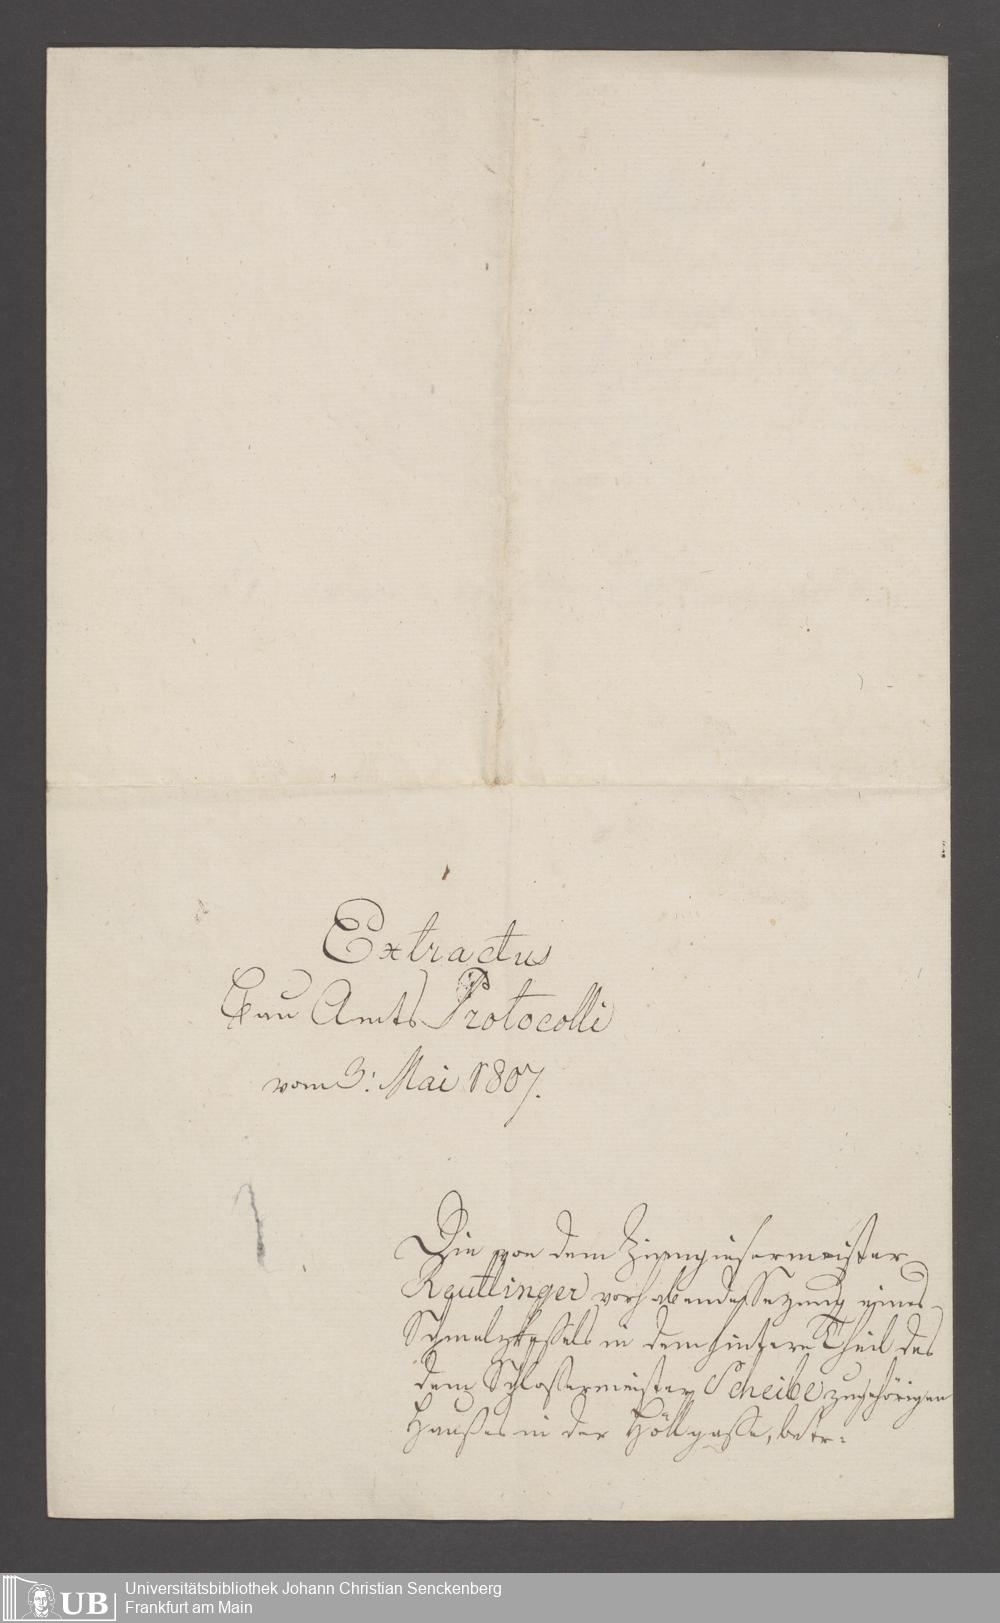 Extractus
Bau Amts Protocolli
vom 3: Mai 1807.
Die von dem Zinngiesermeister
Reutlinger vorhabende Setzung eines
Schmelzkessels in dem hintern Theil des
dem Schlossermeister Scheibe zugehörigen
Hauses in der Höllgasse, betr:
Universitätsbibliothek Johann Christian Senckenberg
Frankfurt am Main
UB